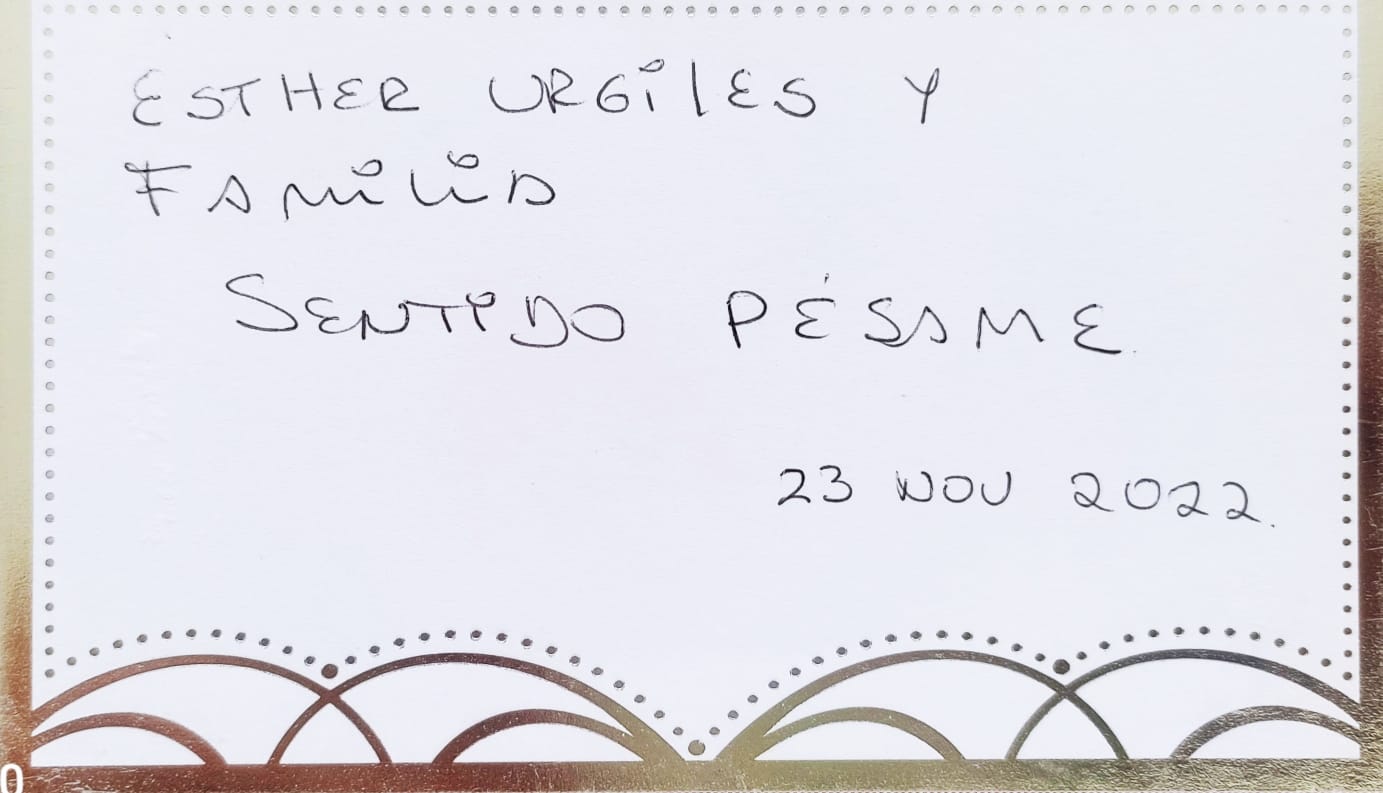 ESTHER URGILES Y
FAMILIA
SENTIDO PÉSAME.
23 NOV 2022.
0